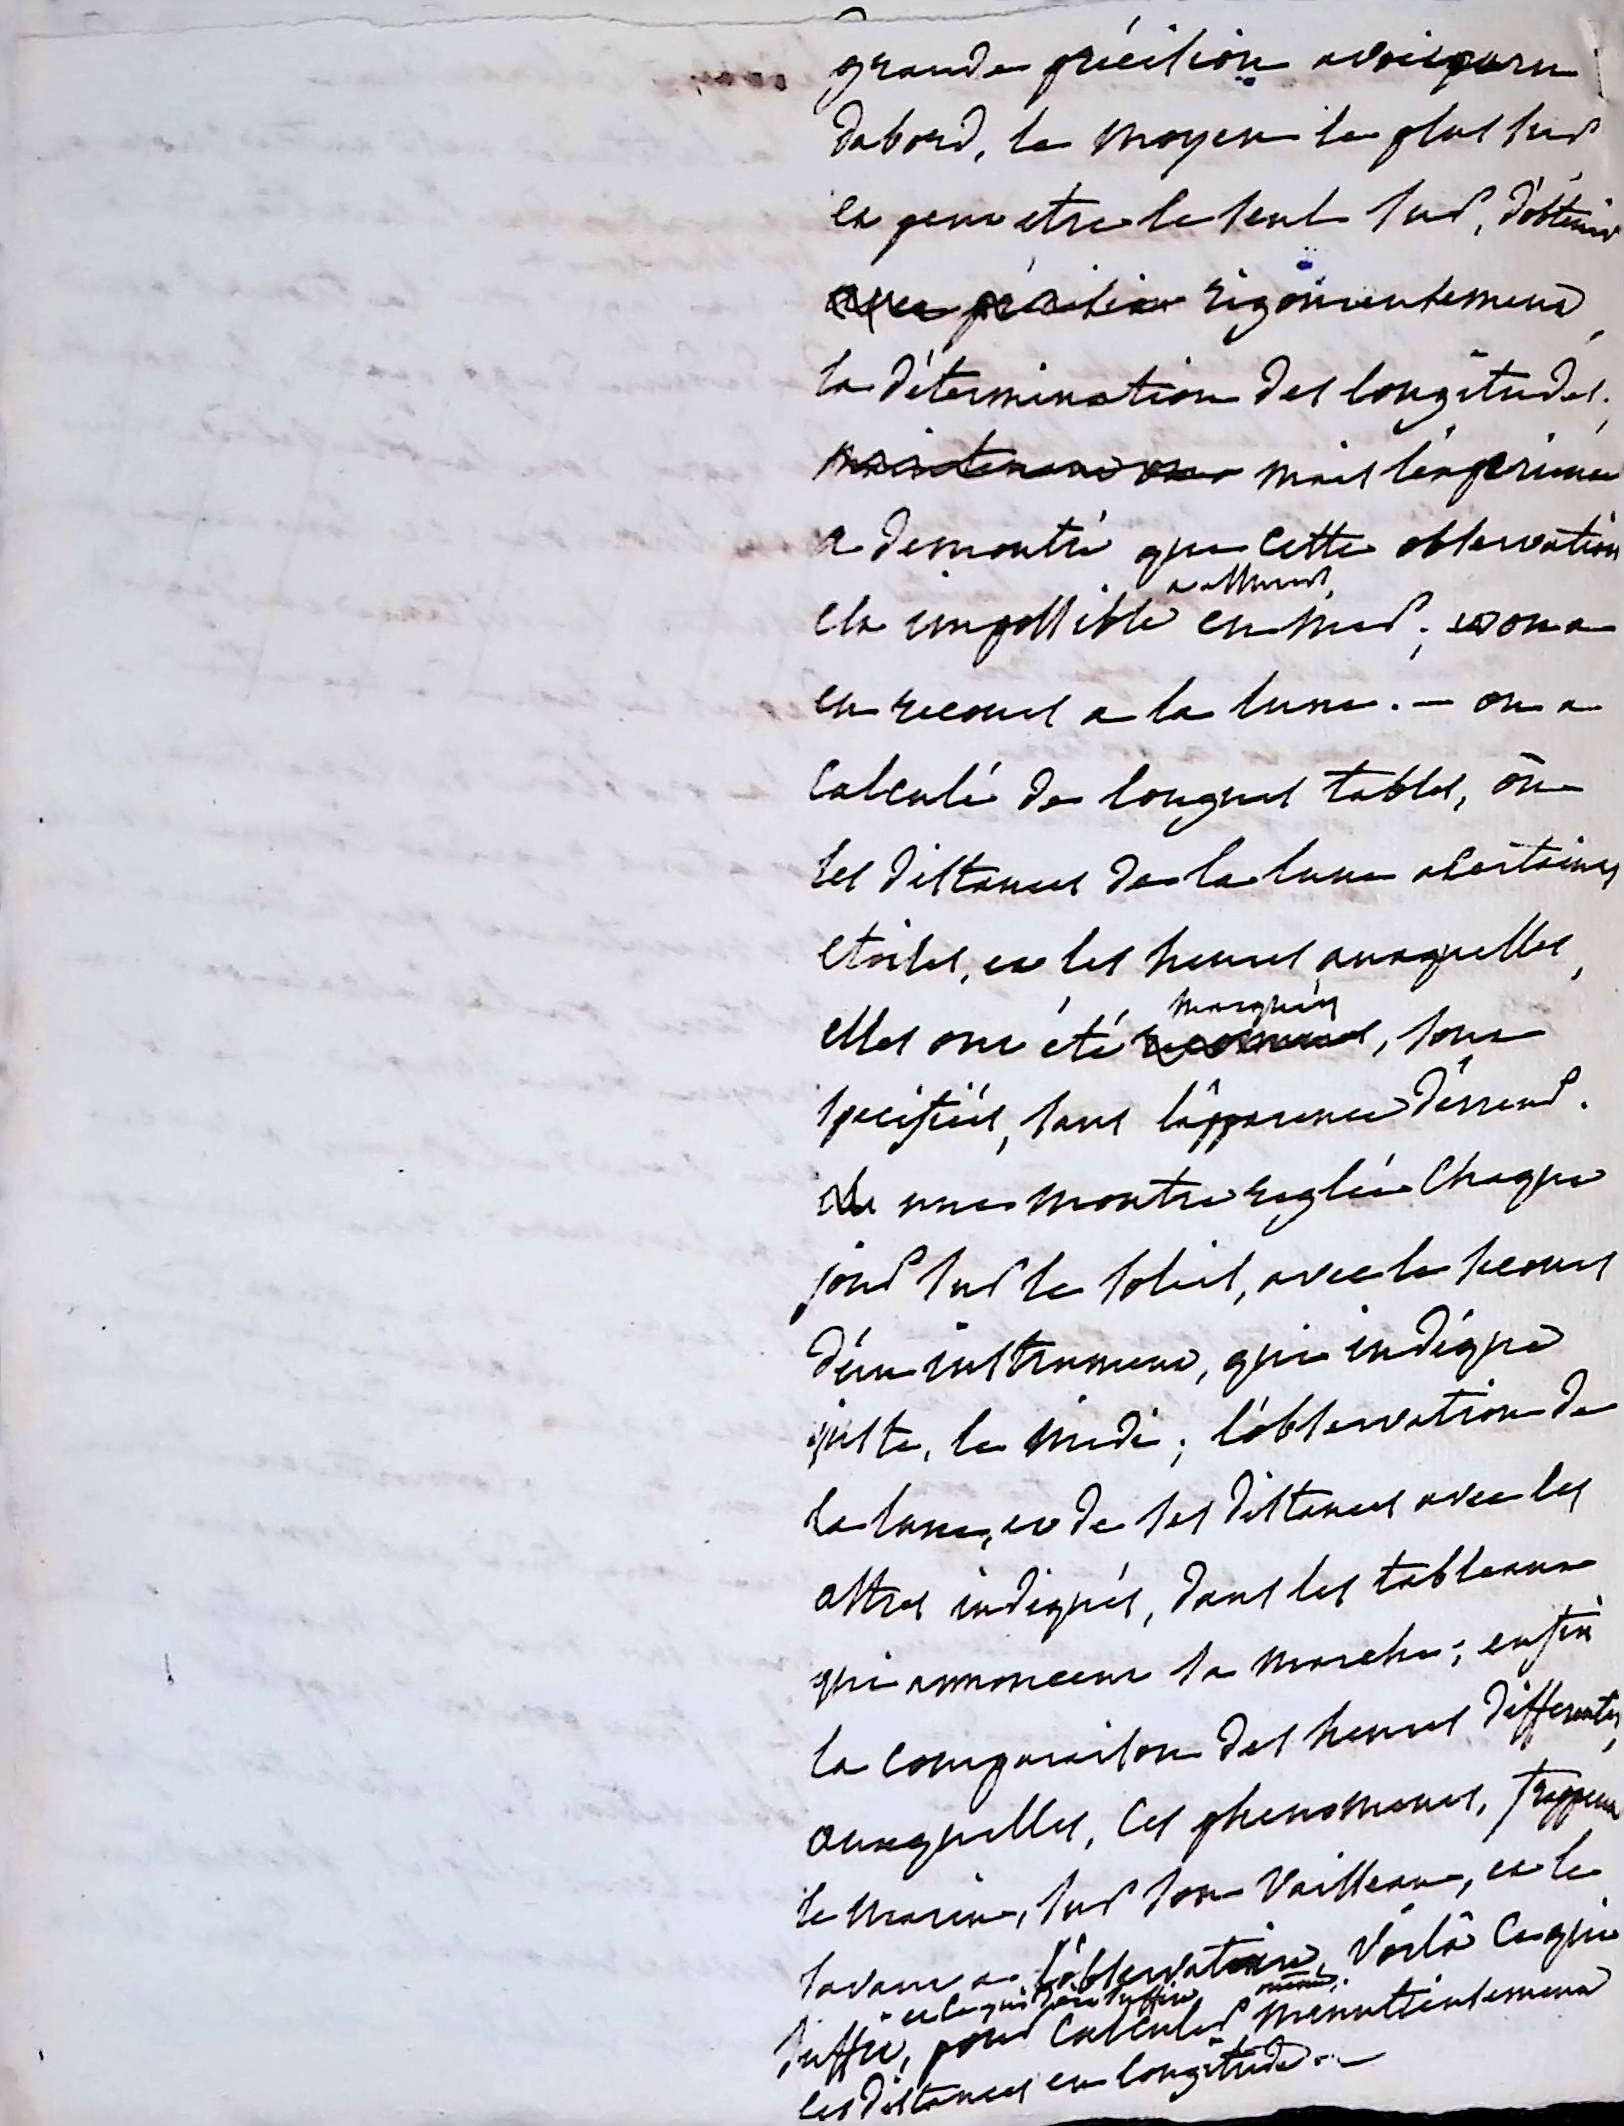 grande précision avoit paru
dabord, le moyen le plus sur
et peut etre le seul sur, d'obtenir
avec précision rigoureusement,
la détermination des longitudes;
maintenant on mais l'experience
a demontré que cette observation
est impossible en mer; et on a
eu recours a la lune. — on a
calculé de longues tables, ou
les distances de la lune a certaines
etoiles, et les heures auxquelles,
marquées
elles ont été reconnues, sont
specifiées, sans l'apparence d'erreur.
une montre reglée chaque
jour sur le soleil, avec le secours
d'un instrument, qui indique
juste, le midi; l'observation de
la lune, et de ses distances avec les
astres indiqués, dans les tableaux
qui annoncent sa marche; enfin
la comparaison des heures differentes,
auxquelles, ces phenomenes, frappent
le marin, sur son vaisseau, et le
savant a l'observatoire, voilà ce qui
et ce qui peut suffire
suffit, pour calculer minutieusement
les distances en longitude. —